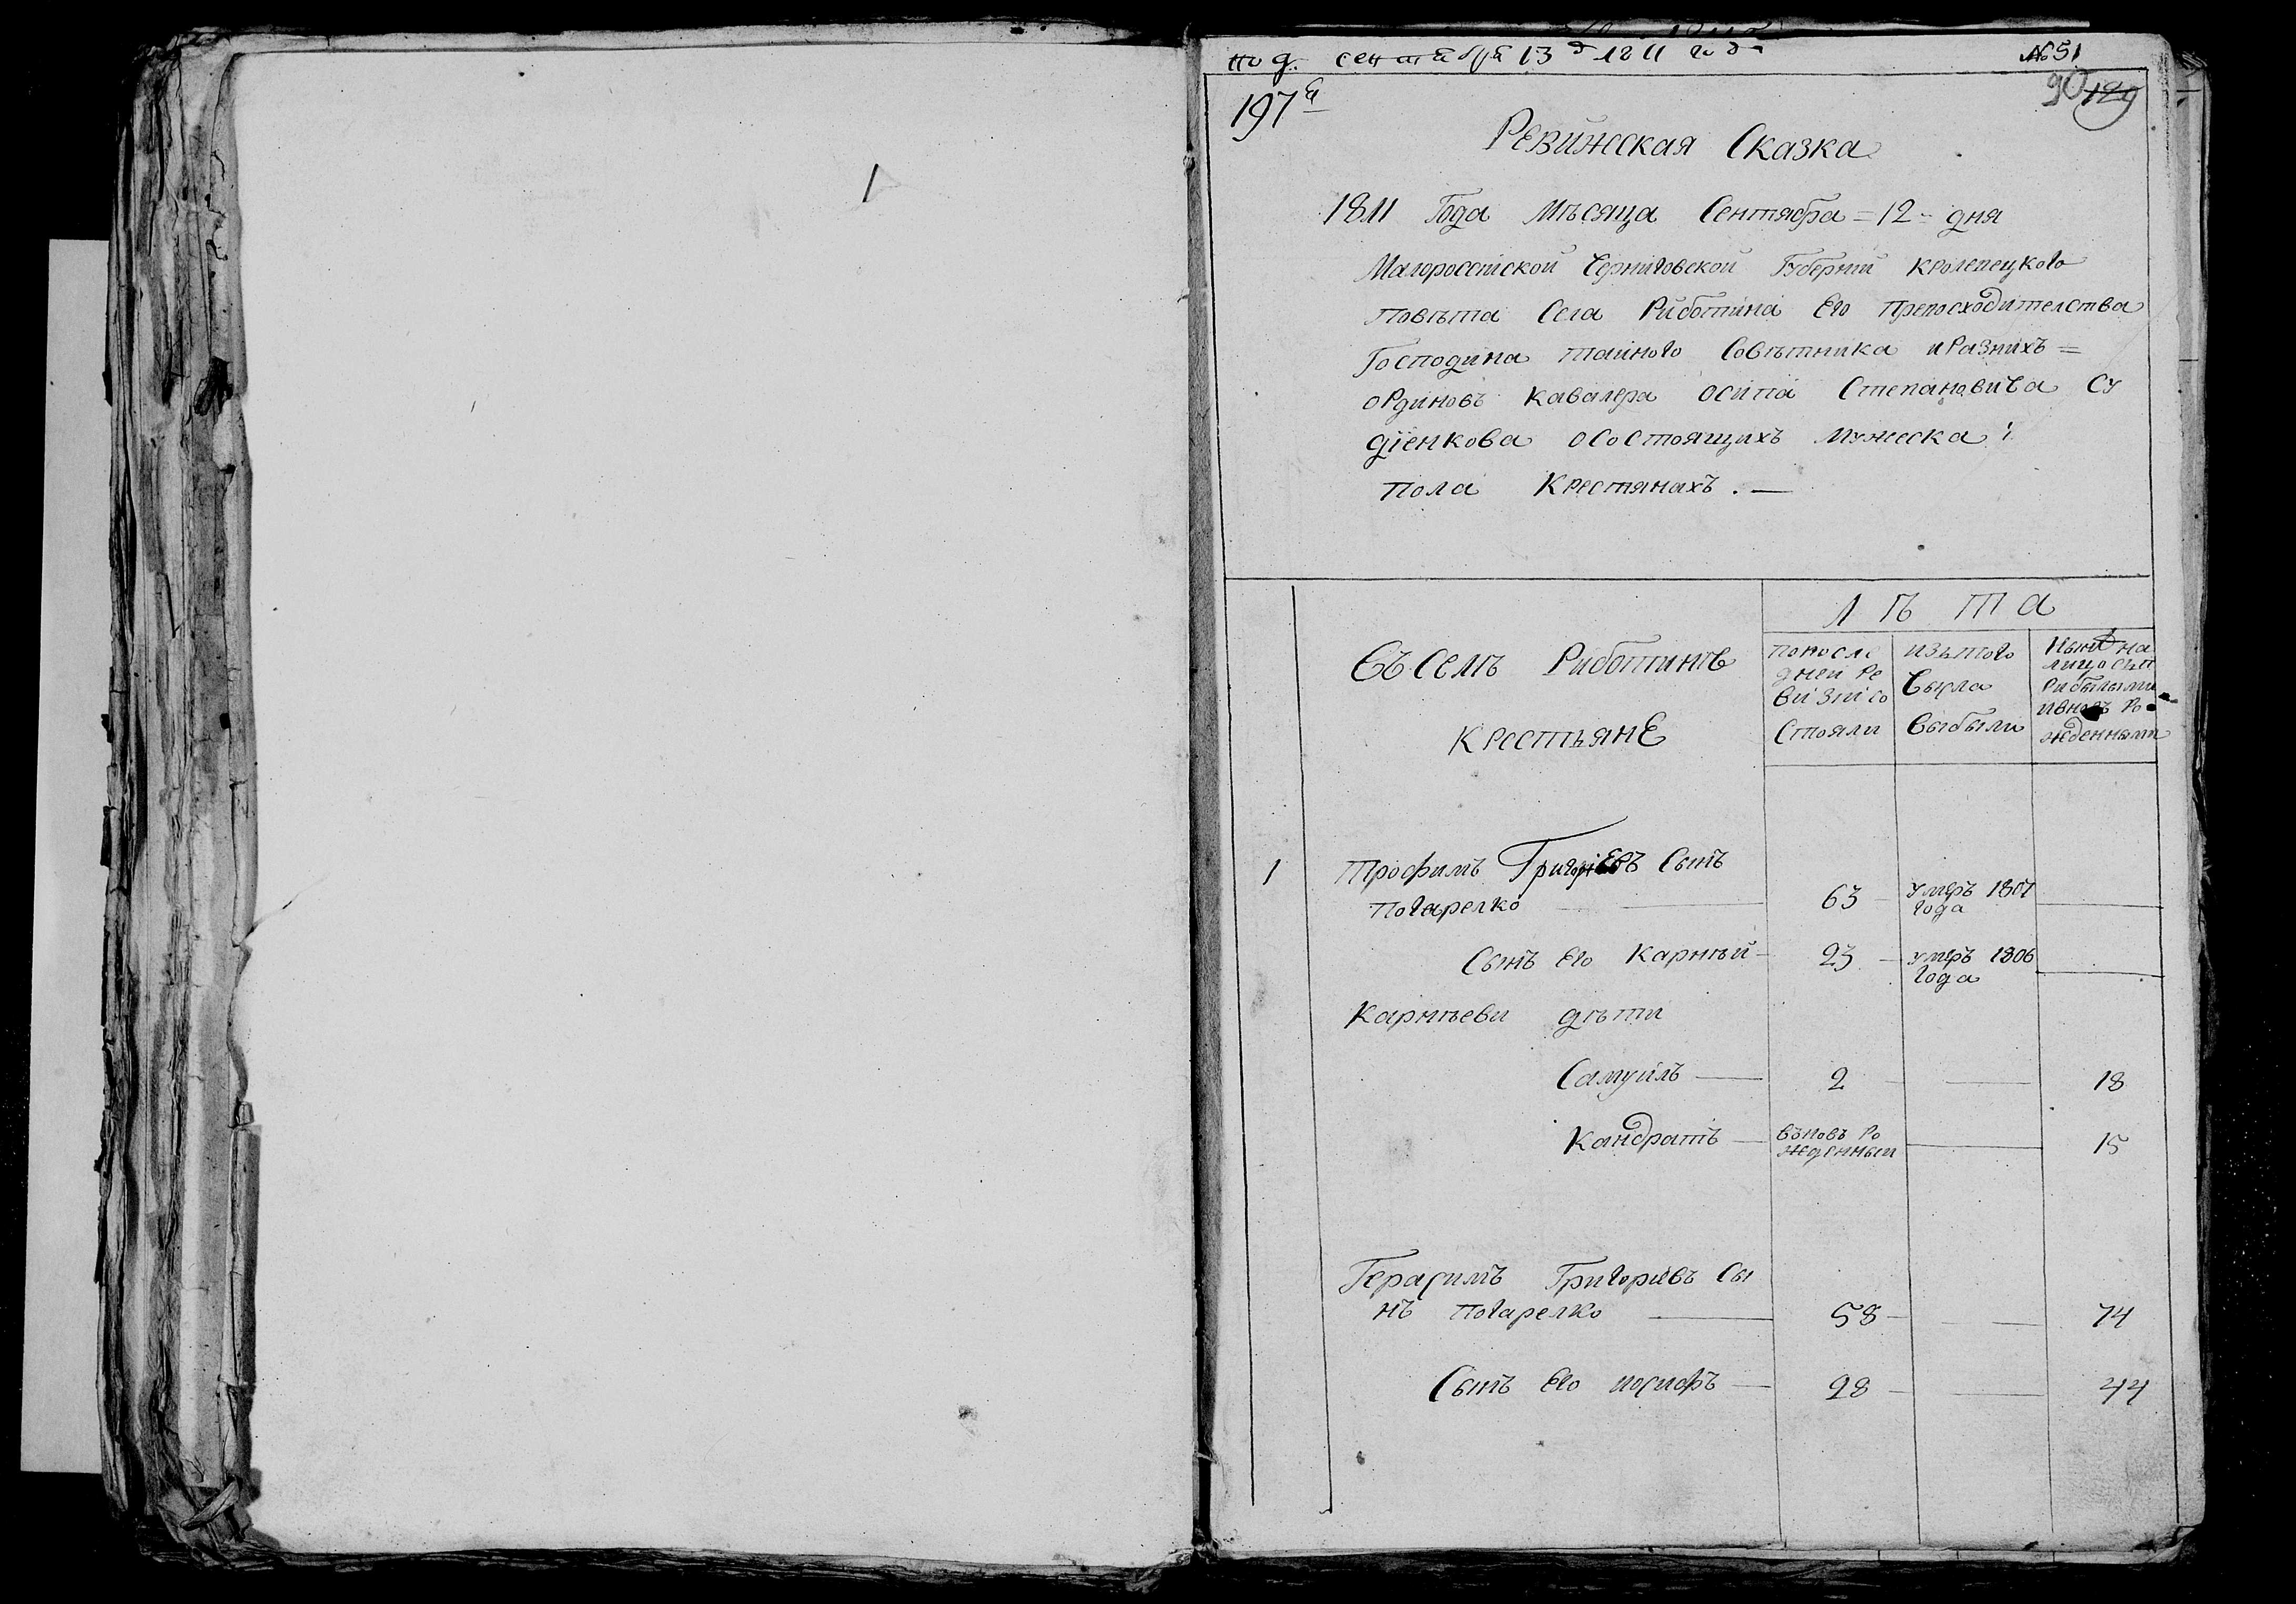 под. сентября 13 д 1811 года
№ 51
197я
90 189
Ревижская Сказка
1811 Года Мѣсяца Сентября = 12 = дня
Малороссійской Черниговской Губерній Кролевецкого
Повѣта Села Риботина Его Превосходителства
Господина тайного Совѣтника и Разнихъ =
ординовъ Кавалера Осипа Степановича Су
діенкова о Состоящихъ Мужеска
пола Крестянахъ. —
Лѣта
Въ Селѣ Риботинѣ
Крестьяне
по после
дней Ре
визіи со
стояли
изътого
числа
выбыли
Нынѣ на
лицо съп
рибылыми
ивновъ ро
жденными
1
Трофимъ Григоріевъ Сынъ
Погарелко — 63 — умеръ 1807
года —
Сынъ Его Карнѣй — 23 — умеръ 1806
года —
Карнѣеви дѣти
Самуилъ — 2 — 18
Кандратъ — въновъ ро
жденный — 15
Герасимъ Григоріевъ Сы
нъ Погарелко — 58 — 74
Сынъ Его иосифъ — 28 — 44